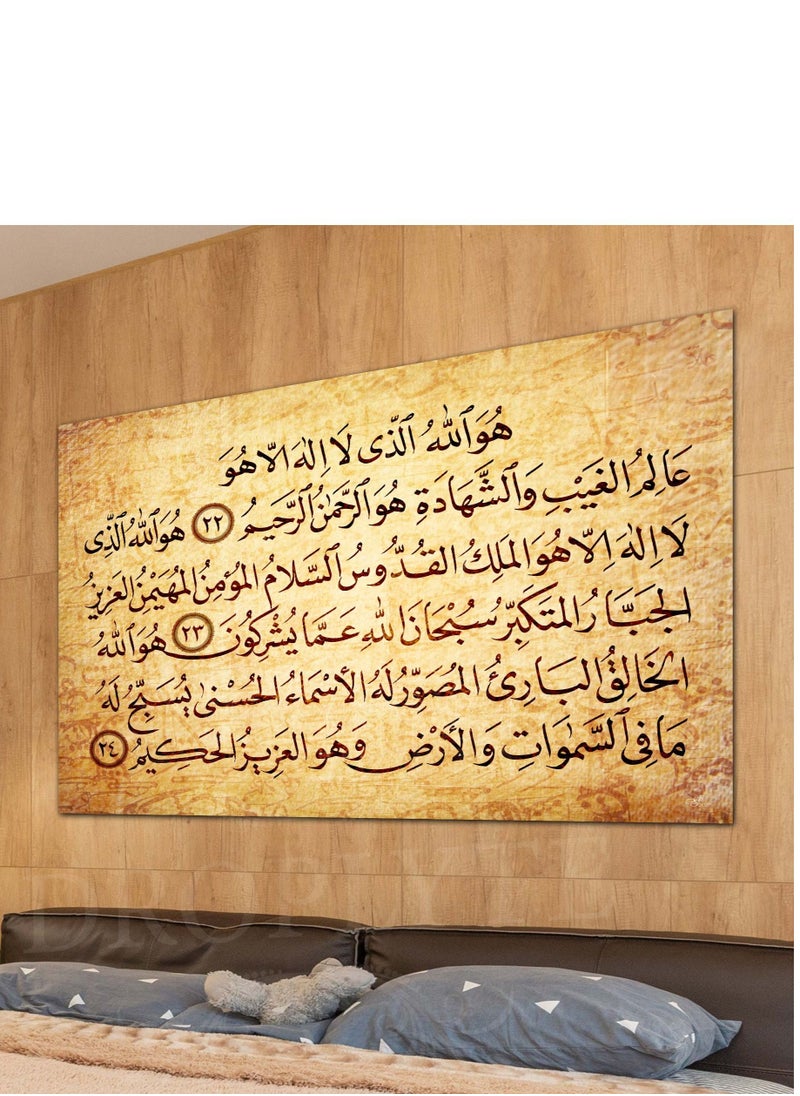 هُوَ ٱللّٰهُ ٱلَّذِى لَا اِلٰهَ اِلَّا هُوَ
عَالِمُ الغَيْبِ وَٱلشَّهَادَةِ هُوَ ٱلرَّحْمٰنُ ٱلرَّحِيمُ ٢٢ هُوَ ٱللّٰهُ ٱلَّذِى
لَا اِلٰهَ اِلَّا هُوَ المَلِكُ القُدُّوسُ ٱلسَّلَامُ المُؤْمِنُ المُهَيْمِنُ العَزِيزُ
الجَبَّارُ المُتَكَبِّرُ سُبْحَانَ ٱللّٰهِ عَمَّا يُشْرِكُونَ ٢٣ هُوَ ٱللّٰهُ
الخَالِقُ البَارِئُ المُصَوِّرُ لَهُ الأَسْمَاءُ الحُسْنىٰ يُسَبِّحُ لَهُ
مَا فِى ٱلسَّمٰوَاتِ وَالأَرْضِ وَهُوَ العَزِيزُ الحَكِيمُ ٢٤